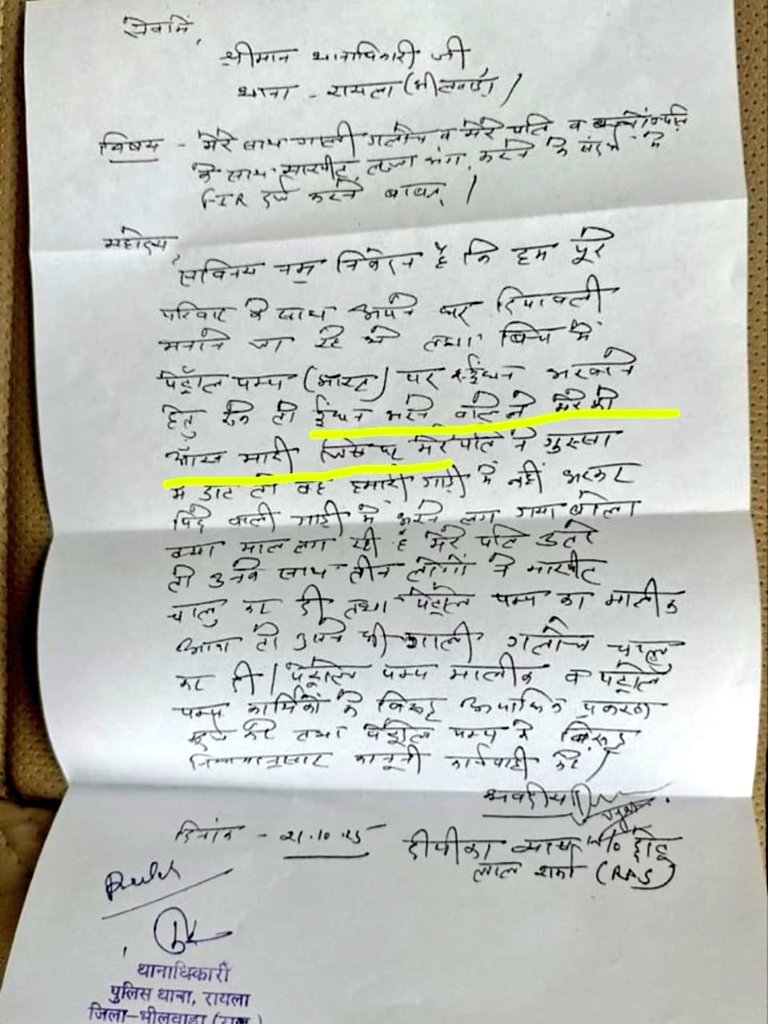 सेवामें,
श्रीमान थानाधिकारी जी
थाना - रायला (भीलवाड़ा)।
विषय - मेरे साथ गाली गलौच व मेरे पति व
के साथ मारपीट, लज्जा भंग, करने के संदर्भ में
FIR दर्ज करने बाबत्।
महोदय,
सविनय नम्र निवेदन है कि हम पूरे
परिवार के साथ अपने घर दिपावली
मनाने जा रहे थे तथा बिच में
पेट्रोल पम्प पर ईंधन भरवाने
हेतु रुके तो ईंधन भरने वाले ने मेरे को
आँख मारी जिस पर मेरे पति ने गुस्सा
में डाट तो वह हमारी गाड़ी में नहीं भरकर
पिछे वाली गाड़ी में भरने लग गया बोला
क्या माल लग रही है मेरे पति उतरे
तो उनके साथ तीन लोगों ने मारपीट
चालु कर दी तथा पेट्रोल पम्प का मालीक
आया तो उसने भी गाली गलौच चालु
कर दी। पेट्रोल पम्प मालीक व पेट्रोल
पम्प कार्मिकों के विरूद्ध अपराधिक प्रकरण
दर्ज करे तथा पेट्रोल पम्प के विरूद्ध
नियमानुसार कानूनी कार्यवाही करे।
भवदीया
दिनांक - 21.10.25
दीपीका व्यास w/o छोटू
लाल शर्मा (RAS)
थानाधिकारी
पुलिस थाना, रायला
जिला-भीलवाड़ा (राज.)